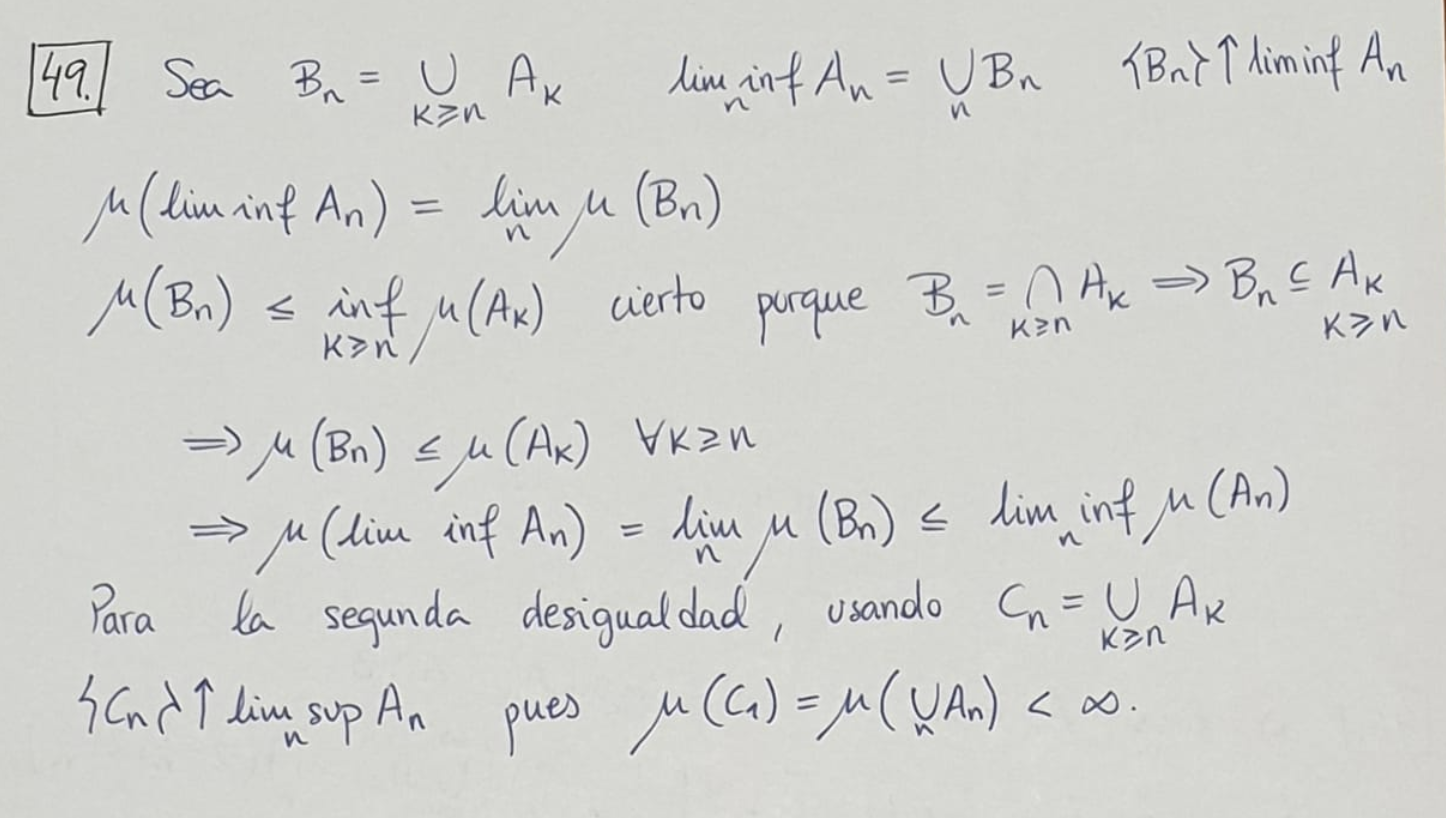 49. Sea Bₙ = ∪_{K≥n} A_K   lim inf_n Aₙ = ∪_n Bₙ   {Bₙ}↑ lim inf Aₙ
μ(lim inf Aₙ) = lim_n μ(Bₙ)
μ(Bₙ) ≤ inf_{K≥n} μ(A_K) cierto porque Bₙ = ∩_{K≥n} A_K ⇒ Bₙ ⊆ A_K K≥n
⇒ μ(Bₙ) ≤ μ(A_K) ∀K≥n
⇒ μ(lim inf Aₙ) = lim_n μ(Bₙ) ≤ lim_n inf μ(Aₙ)
Para la segunda desigualdad, usando Cₙ = ∪_{K≥n} A_K
{Cₙ}↑ lim_n sup Aₙ pues μ(C₁) = μ(∪_n Aₙ) < ∞.